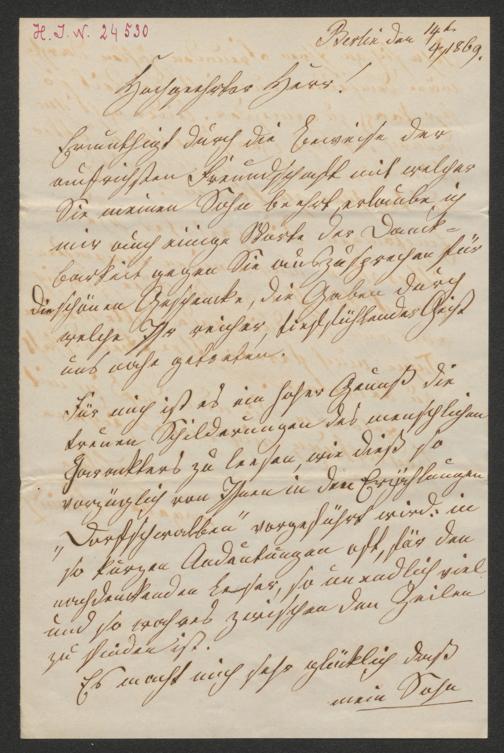 H. I. N. 24530
Berlin den 14t.
4/1869.
Hochgeehrter Herr!
Ermuthigt durch die Beweise der
aufrichtigen Freundschaft mit welcher
Sie meinen Sohn beehrt, erlaube ich
mir auch einige Worte der Dank-
barkeit gegen Sie auszusprechen für
die schönen Geschenke, die Gaben durch
welche Ihr reicher, tieffühlender Geist
uns nahe getreten.
Für mich ist es ein hoher Genuß die
treuen Schilderungen des menschlichen
Charakters zu lesen, wie dieß so
vorzüglich von Ihnen in den Erzählungen
„Dorfschwalben" vorgeführt wird: in
so kurzen Andeutungen oft, für den
nachdenkenden Leser, so unendlich viel
und so wahres zwischen den Zeilen
zu finden ist.
Es macht mich sehr glücklich daß
mein Sohn